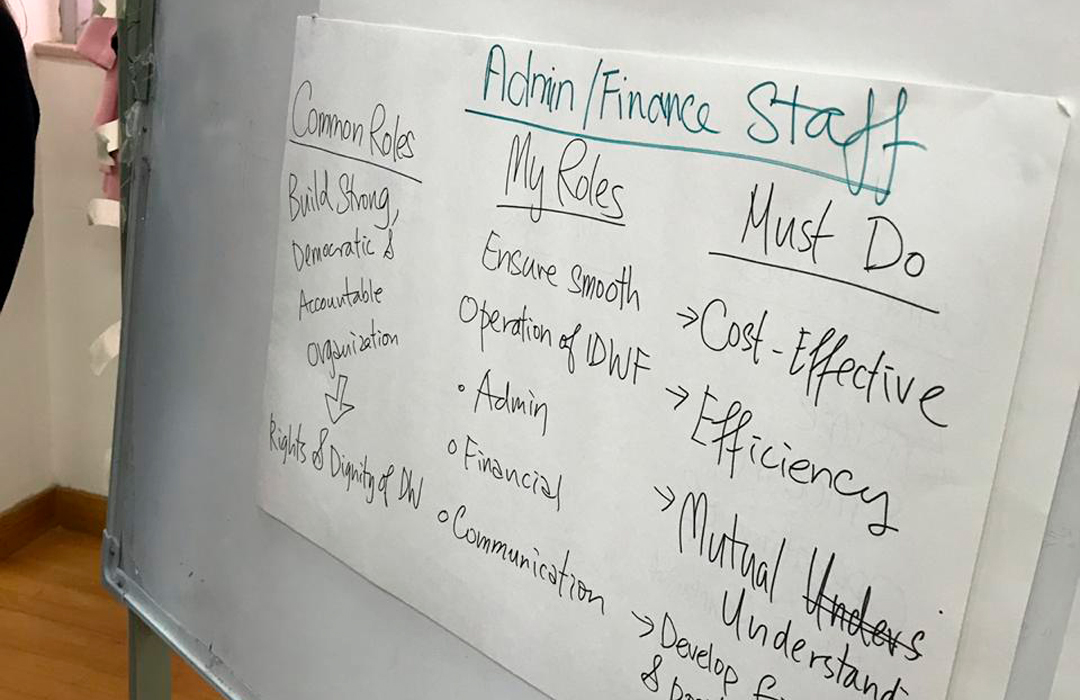 Admin/Finance Staff
Common Roles
Build Strong,
Democratic &
Accountable
Organization
⇓
Rights & Dignity of DW
My Roles
Ensure Smooth
Operation of IDWF
• Admin
o Financial
o Communication
Must Do
→ Cost-Effective
→ Efficiency
→ Mutual Unders
Understand
→ Develop
&